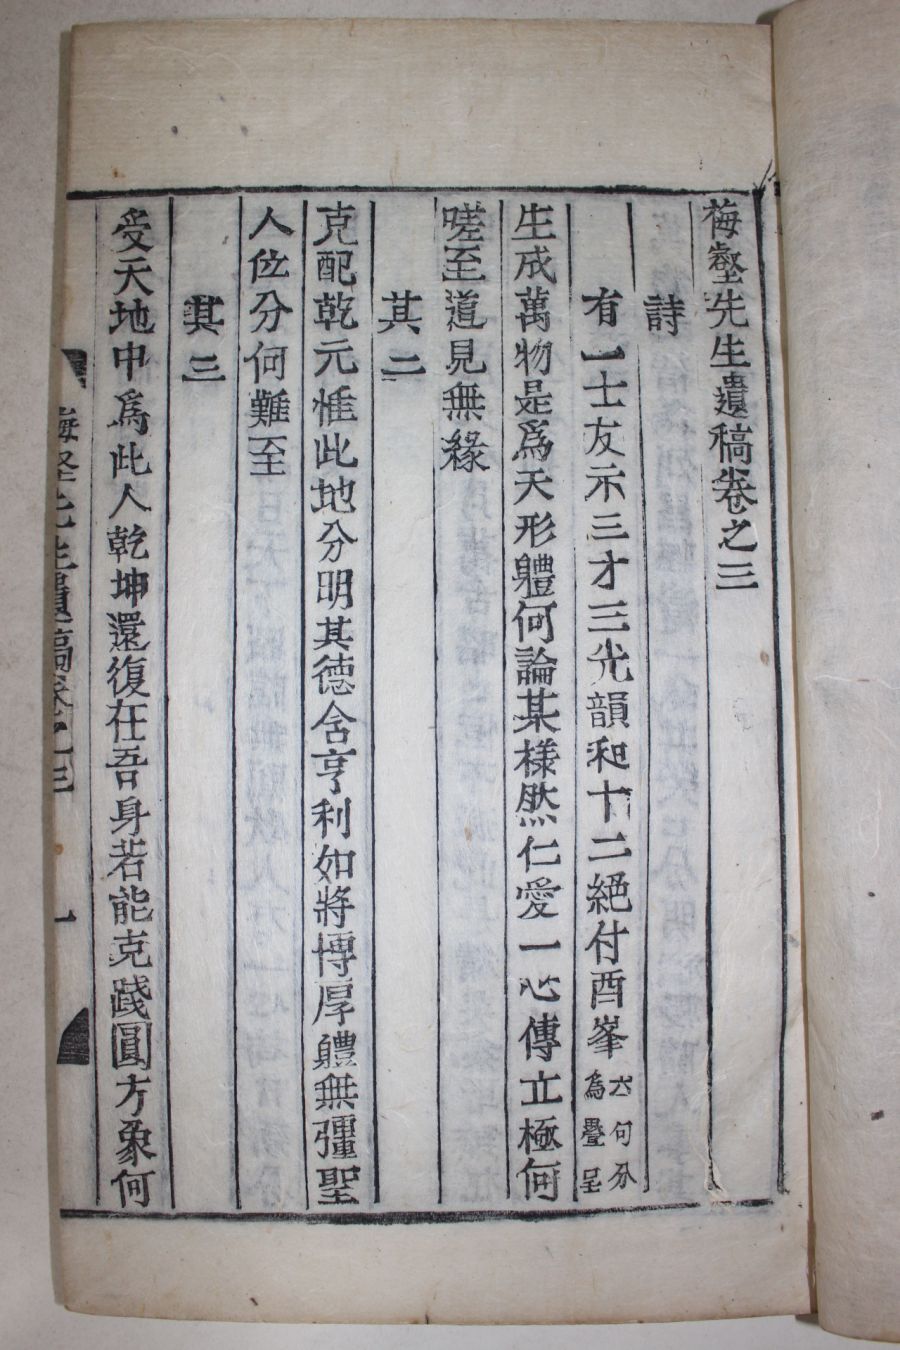 梅壑先生遺稿卷之三
詩
有一士友示三才三光韻和十二絕付酉峯六句分為疊呈
生成萬物是爲天形軆何論某樣然仁愛一心傳立極何
嗟至道見無緣
其二
克配乾元惟此地分明其德含亨利如將博厚軆無彊聖
人位分何難至
其三
受天地中爲此人乾坤還復在吾身若能克踐圓方象何
梅壑先生遺稿卷之三 一